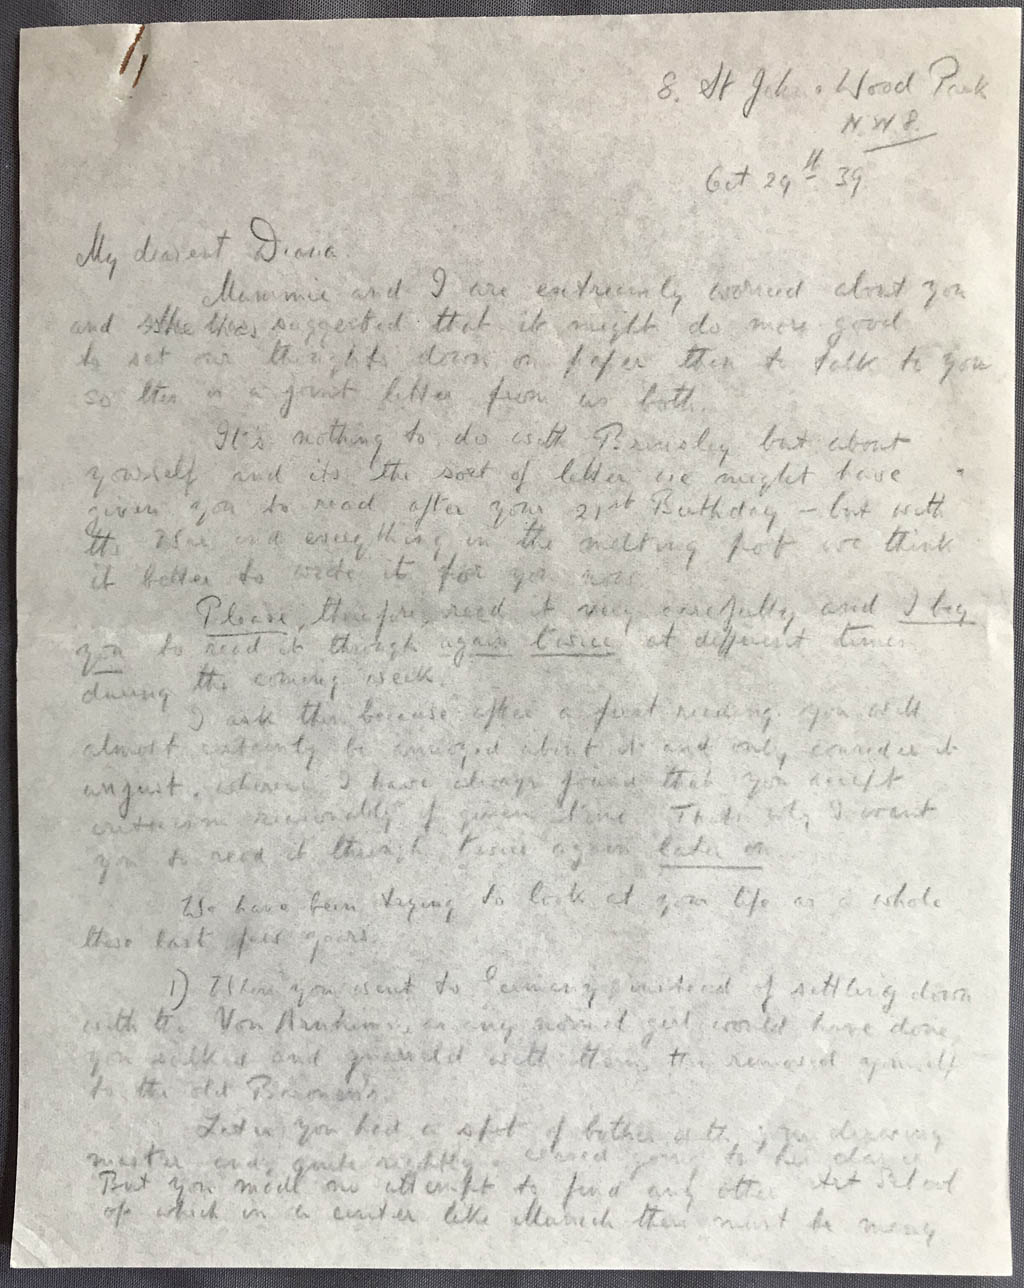 8. St John's Wood Park
N.W.8.
Oct 29th 39
My dearest Diana.
Mummie and I are extremely worried about you
and she has suggested that it might do more good
to set our thoughts down on paper than to talk to you
so this is a joint letter from us both.
It's nothing to do with Brinsley but about
yourself and its the sort of letter we might have
given you to read after your 21st Birthday - but with
the War and everything in the melting pot we think
it better to write it for you now
Please, therefore, read it very carefully and I beg
you to read it through again twice at different times
during the coming week.
I ask this because after a first reading you will
almost certainly be annoyed about it and only consider it
unjust. whereas I have always found that you accept
criticism reasonably if given time That's why I want
you to read it through twice again later on
We have been trying to look at your life as a whole
these last few years.
1) When you went to Germany, instead of settling down
with the Von Arnhims, as any normal girl would have done,
you sulked and quarrelled with them, then removed yourself
to the old Baroness's.
Later you had a spot of bother with your drawing
master and, quite rightly, ceased going to his class
But you made no attempt to find any other Art School
of which in a center like Munich there must be many